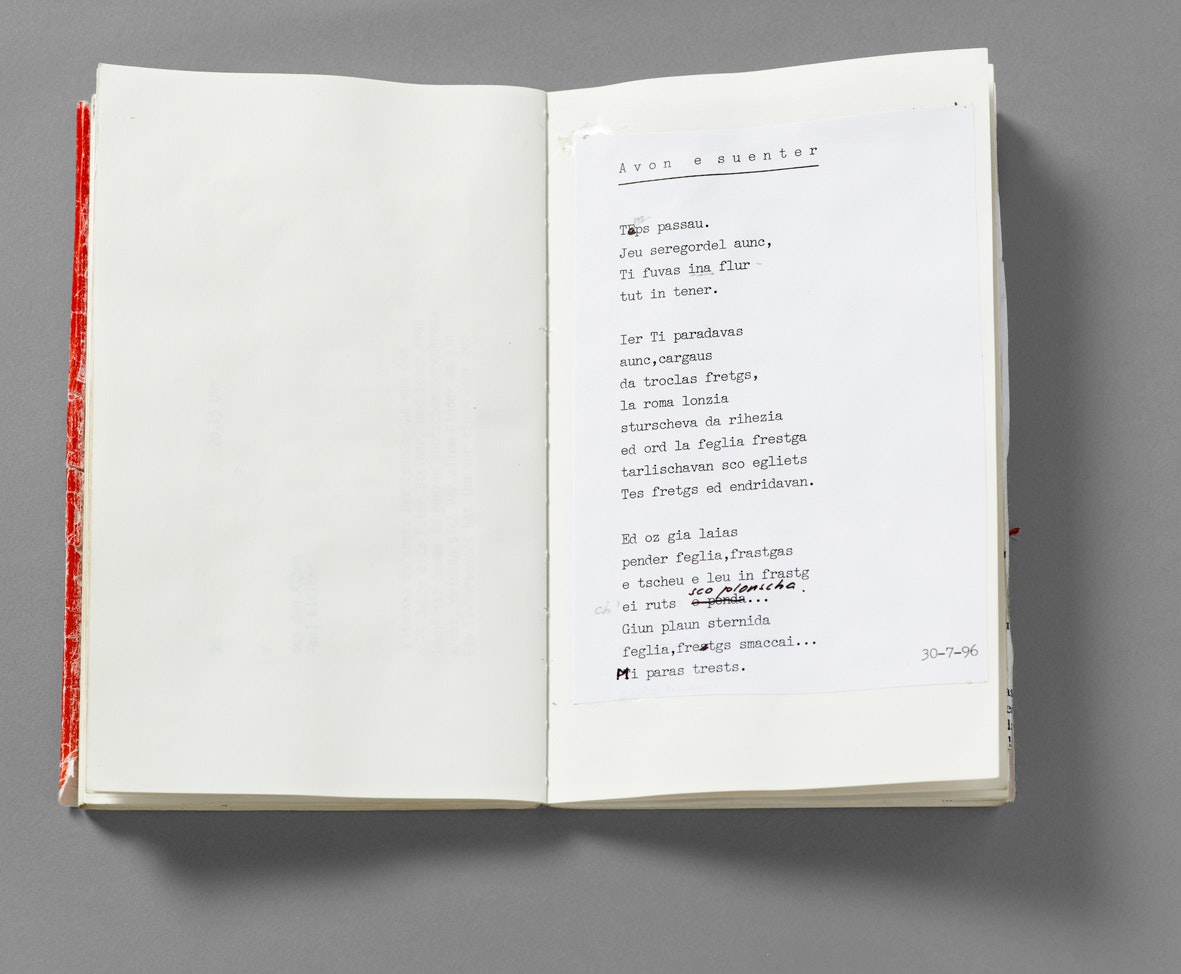 Avon e suenter
passau.
Jeu seregordel aunc,
Ti fuvas ina flur
tut in tener.
Ier Ti paradavas
aunc,cargaus
da troclas fretgs,
la roma lonzia
sturscheva da rihezia
ed ord la feglia frestga
tarlischavan sco egliets
Tes fretgs ed endridavan.
Ed oz gia laias
pender feglia,frastgas
e tscheu e leu in frastg
sco plonscha.
ch' ei ruts e penda...
Giun plaun sternida
feglia,fretgs smaccai...
Mi paras trests.
30-7-96